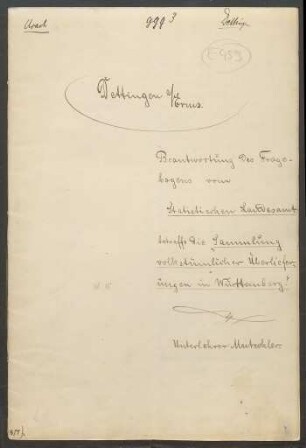 Urach
999³
Dettingen a/Erms.
Beantwortung des Frage-
bogens vom
Statistischen Landesamt
betreffs die "Sammlung
volkstümlicher Überliefer-
ungen in Württemberg."
Unterlehrer Mutschler